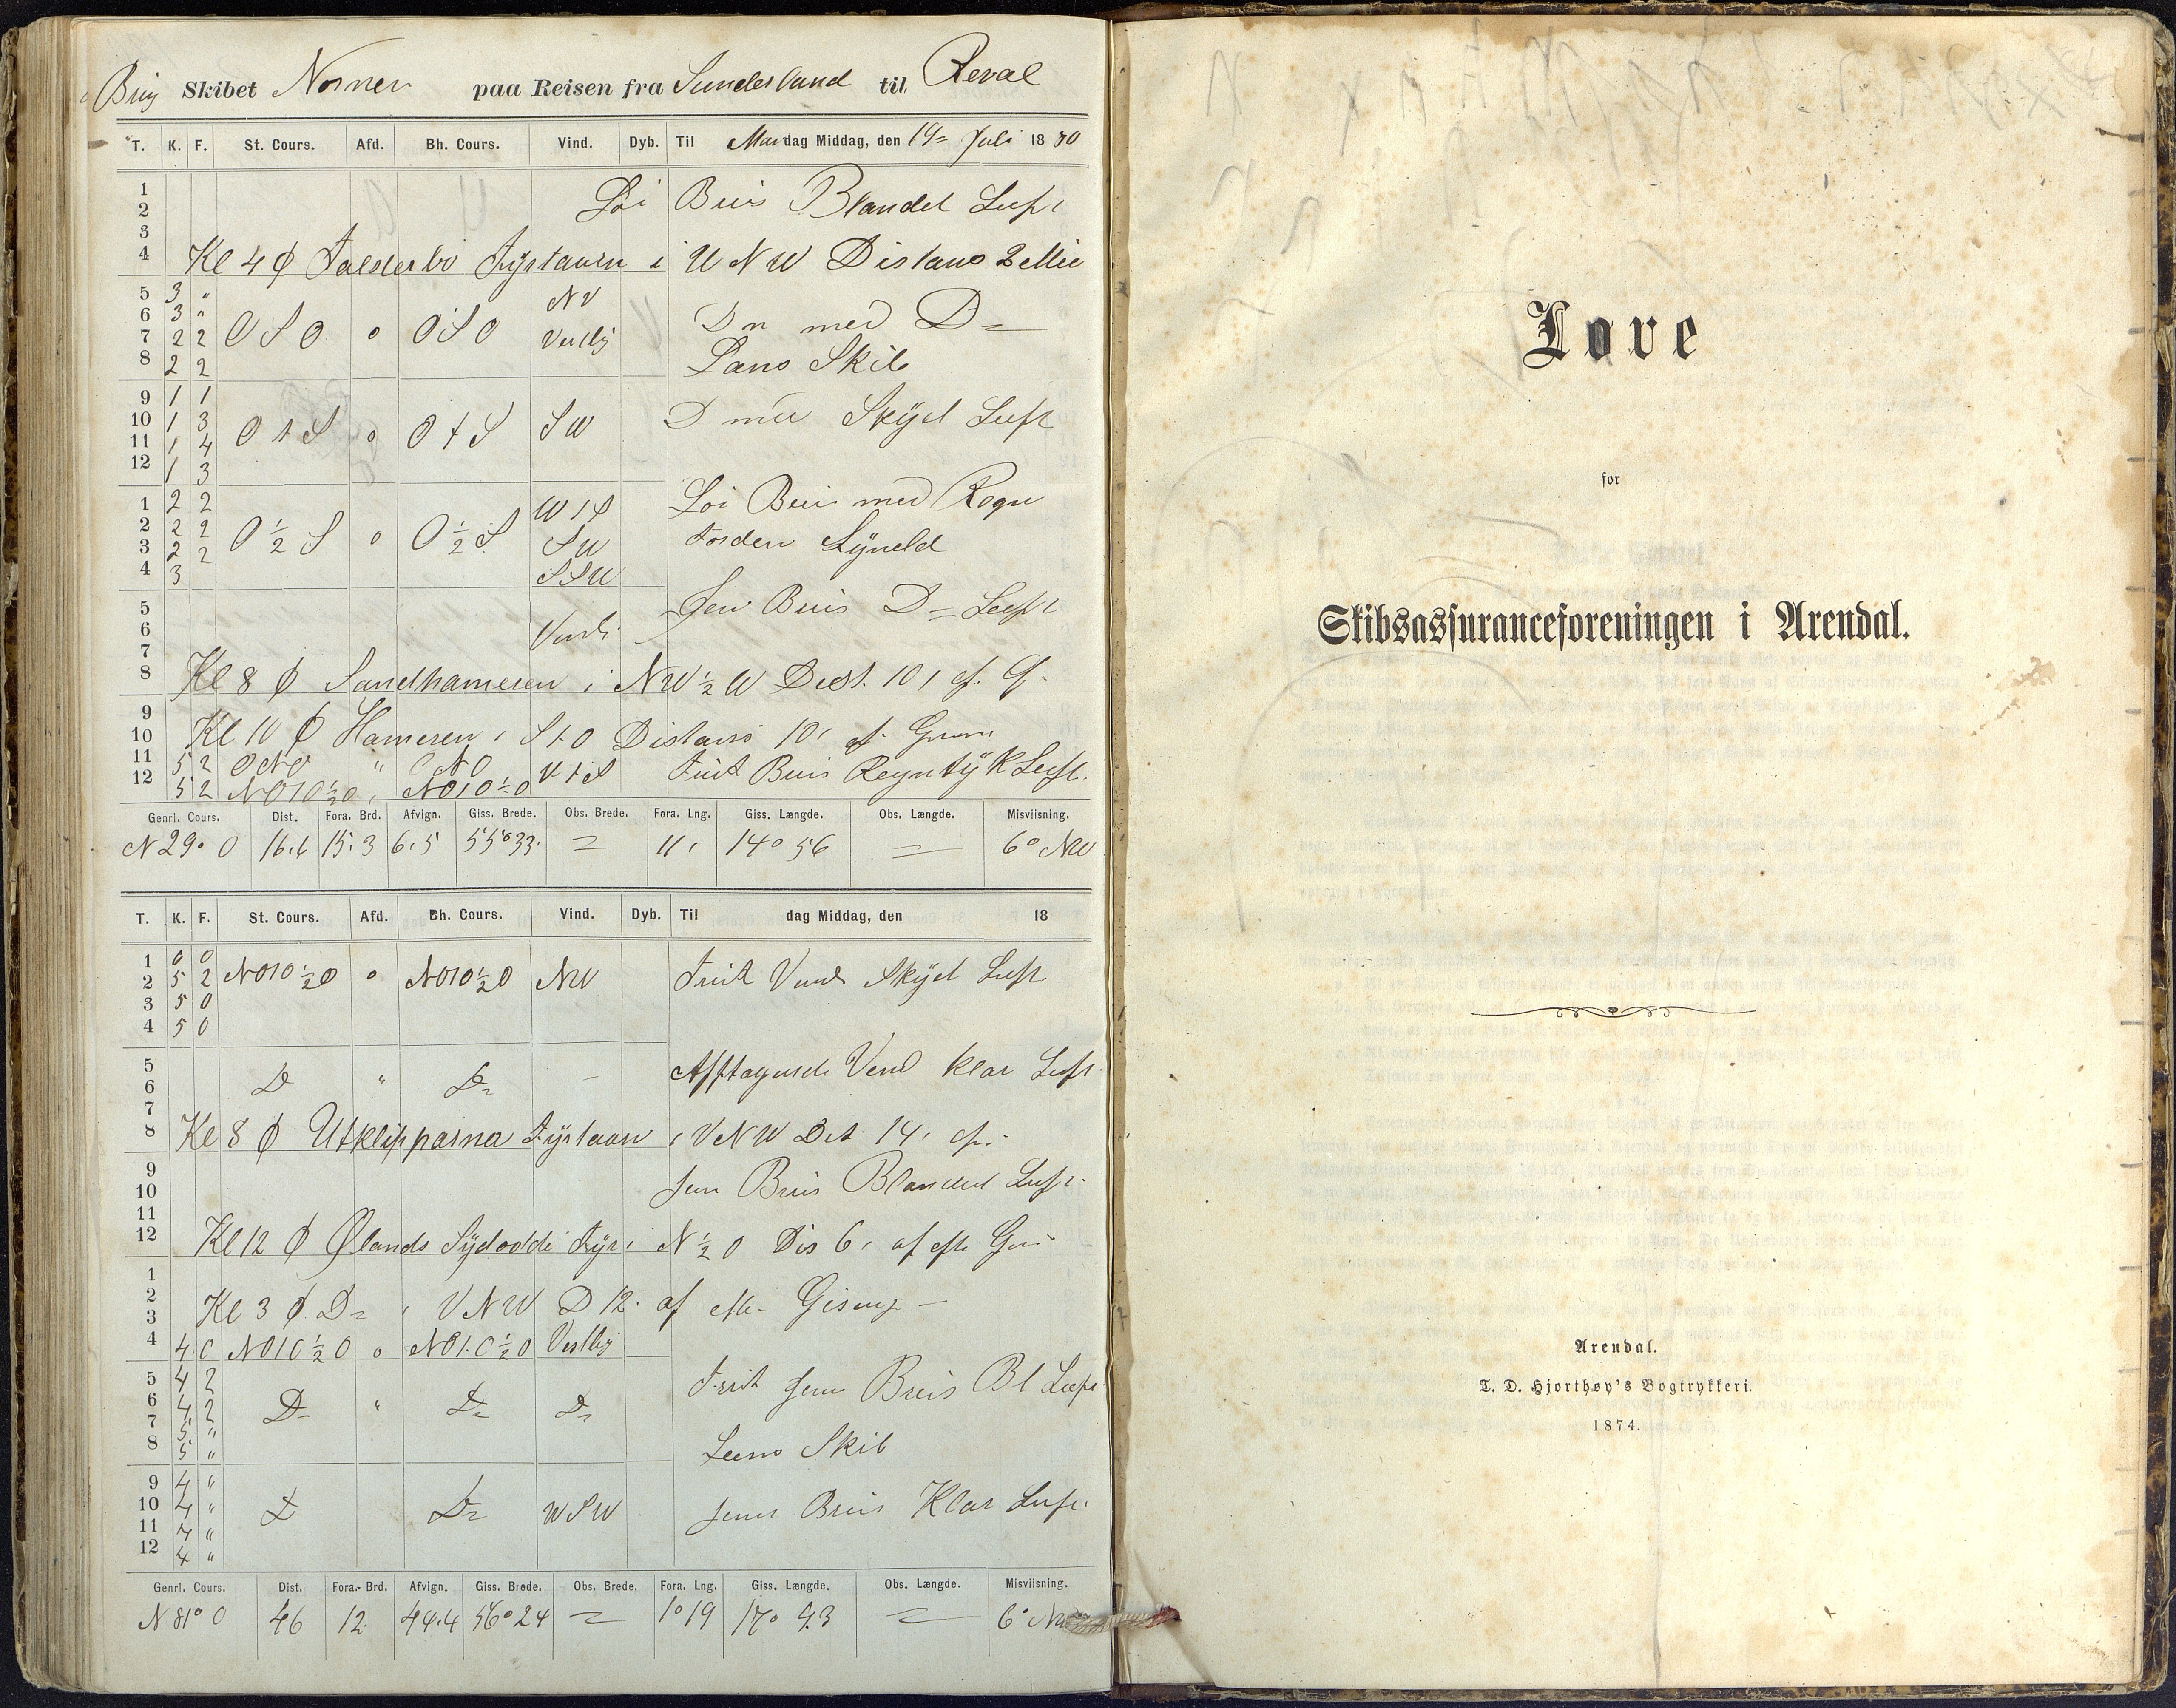 Brig Skibet Norner paa Reisen fra Sunderland til Reval
T. K. F. St. Cours. Afd. Bh. Cours. Vind. Dyb. Til Mandag Middag, den 19= Juli 18 80
1
2 Löi Bris Blandet Luft
3
4 Kl 4 ф Falsterbo Fÿrtaarn i V N W Distans 2 Mil
5 3 "
6 3 " O S O o O S O NV Vestlig D n med D=
7 2 2
8 2 2 Lans Skib
9 1 1
10 1 3 O t S o O t S S W D med Skÿet Luft
11 1 4
12 1 3
1 2 2 W t S Löi Bris med Regn
2 2 2 O ½ S o O ½ S S W Torden Lÿneld
3 2 2
4 3 S S W
5 Jevn Bris D= Luft
6
7
8 Kl 8 ф Sandhameren i NW ½ W Dist. 10 , af. G.
9
10 Kl 10 ф Hameren i S t O Distans 10 , af.
11 5 2 O N O " O N O V t S Frisk Bris Regntÿk Luft.
12 5 2 NOtO ½ O " NOtO ½ O
Genrl. Cours. Dist. Fora. Brd. Afvign. Giss. Brede. Obs. Brede. Fora. Lng. Giss. Længde. Obs. Længde. Misviisning.
N 29° O 16.6 15.3 6.5 55°33. = 11 , 14° 56 = 6° NW
T. K. F. St. Cours. Afd. Bh. Cours. Vind. Dyb. Til dag Middag, den 18
1 0 0
2 5 2 NOtO ½ O o NOtO ½ O NW Frisk Vind Skÿet Luft
3 5 0
4 5 0
5 Afftagende Vind klar Luft.
6 D " D=
7
8 Kl 8 ф Utklipparna Fÿrtaarn i V N W Dist. 14 ,
9 Jevn Bris Blandet Luft.
10
11
12 Kl 12 ф Ølands Sÿdodde Fÿr i N ½ O Dis 6 , af efter
1
2
3 Kl 3 ф D= i V N W D 12. af efter
4 4 0 NOtO ½ O o NOtO ½ O Vestlig
5 4 2 Frisk Jevn Bris Bl Luft
6 4 2 D= " D= D=
7 5 "
8 5 " Lens Skib
9 4 "
10 4 " D D= W S W Jevn Bris Klar Luft.
11 4 "
12 4 "
Genrl. Cours. Dist. Fora. Brd. Afvign. Giss. Brede. Obs. Brede. Fora. Lng. Giss. Længde. Obs. Længde. Misviisning.
N 81° O 46 12. 44.4 56°24 = 1°19 17° 43 = 6°
Love
for
Skibsassuranceforeningen i Arendal.
Arendal.
T. D. Hjorthøy's Bogtrykkeri.
1874.